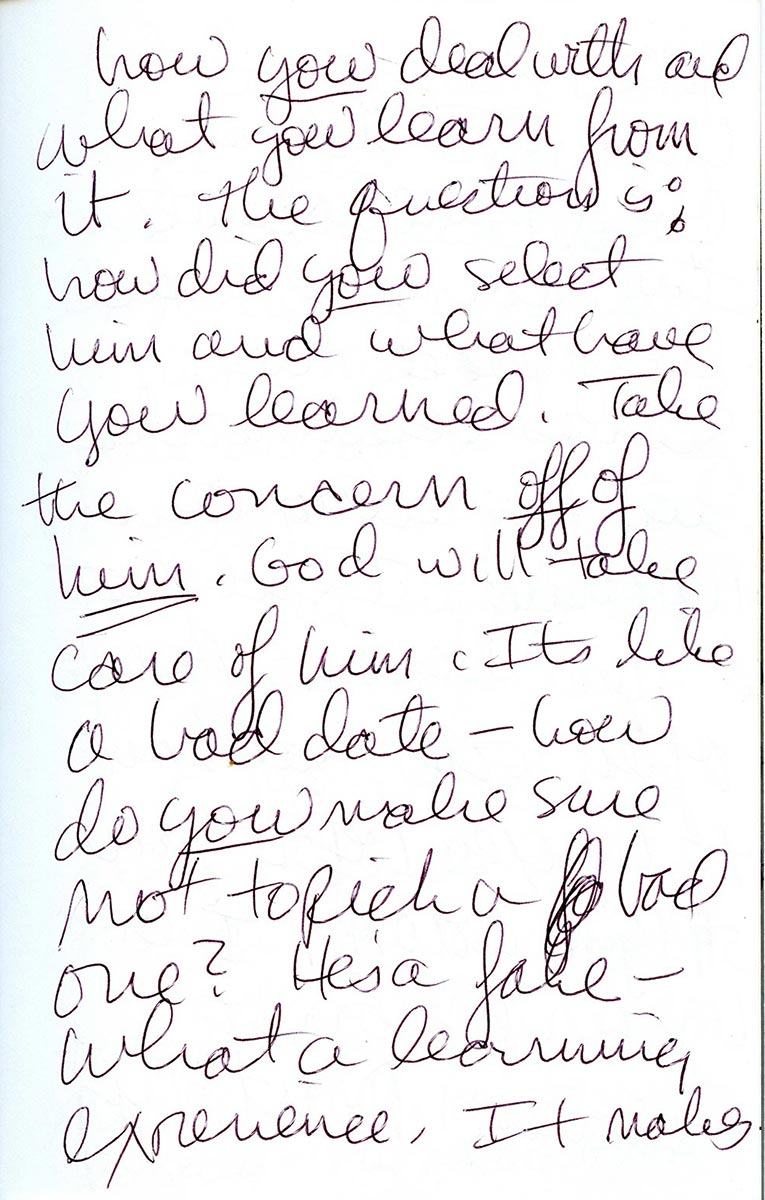 how you deal with and
what you learn from
it. The question is:
how did you select
him and what have
you learned. Take
the concern off of
him. God will take
care of him. Its like
a bad date – how
do you make sure
not to pick a bad
one? He's a fake –
what a learning
experience. It makes